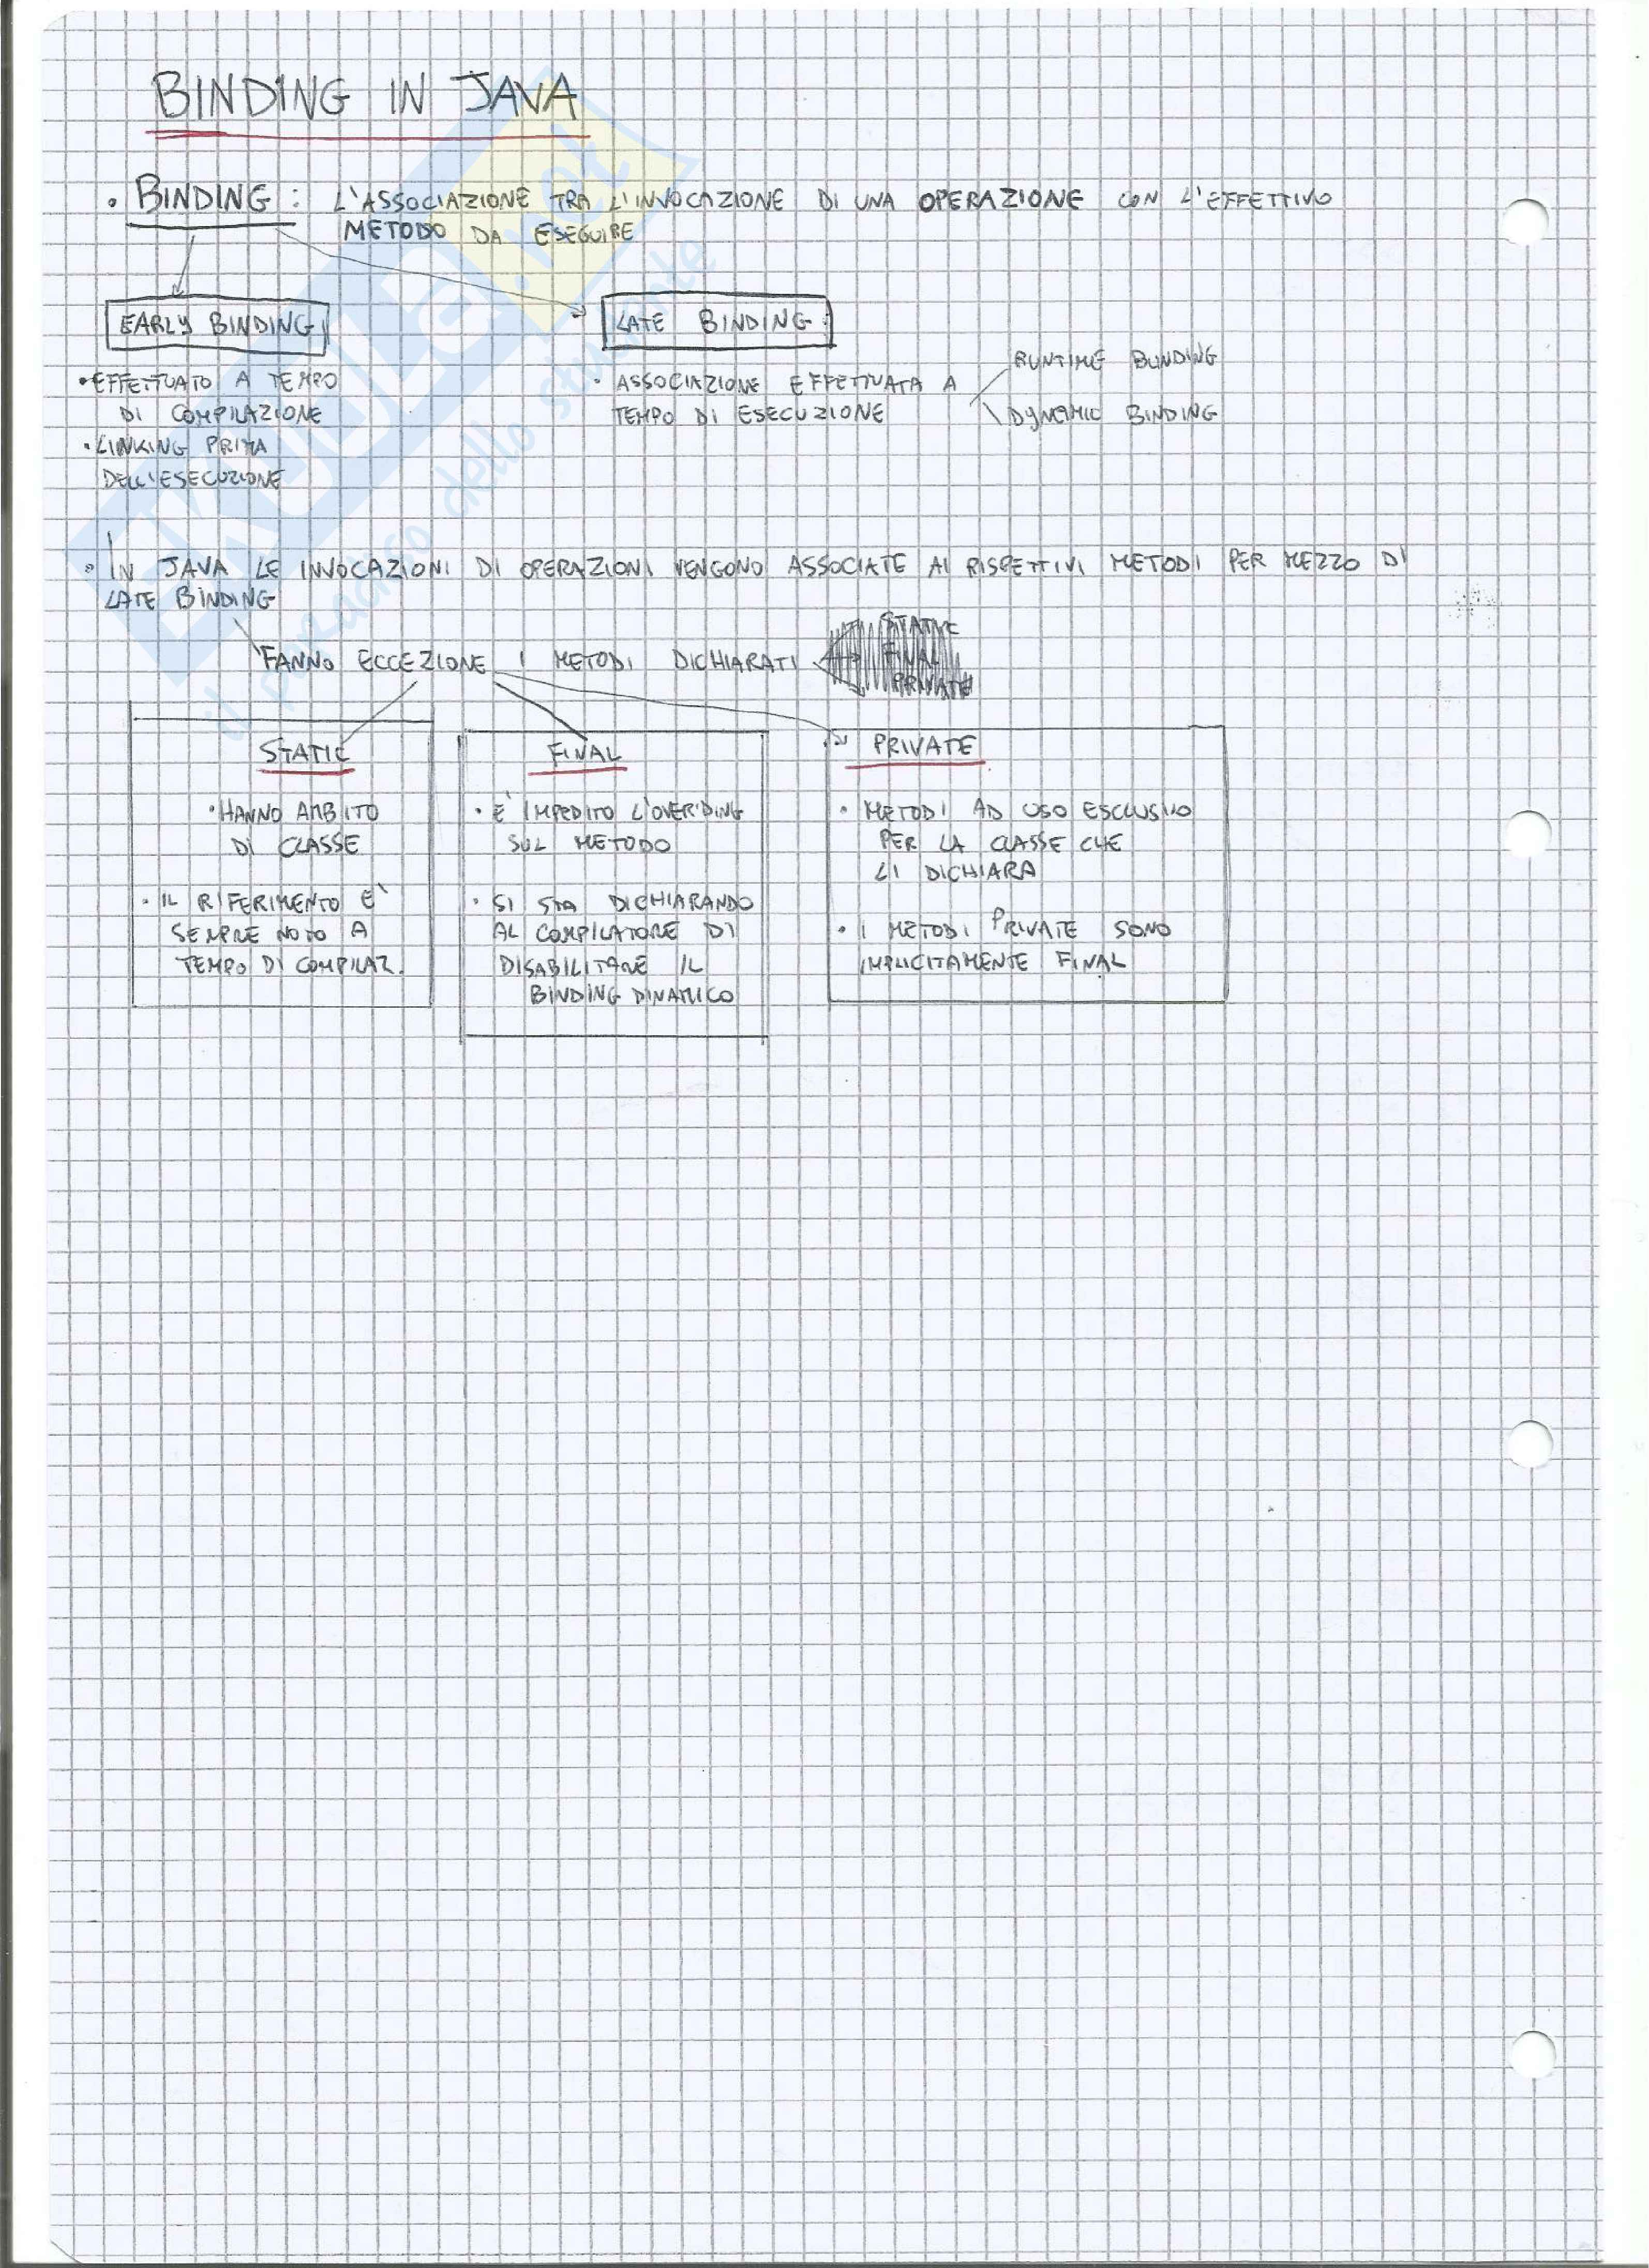 BINDING IN JAVA
• BINDING : L'ASSOCIAZIONE TRA L'INVOCAZIONE DI UNA OPERAZIONE CON L'EFFETTIVO
METODO DA ESEGUIRE
EARLY BINDING
LATE BINDING
• EFFETTUATO A TEMPO
DI COMPILAZIONE
• LINKING PRIMA
DELL'ESECUZIONE
• ASSOCIAZIONE EFFETTUATA A
TEMPO DI ESECUZIONE
RUNTIME BUNDING
DYNAMIC BINDING
• IN JAVA LE INVOCAZIONI DI OPERAZIONI VENGONO ASSOCIATE AI RISPETTIVI METODI PER MEZZO DI
LATE BINDING
FANNO ECCEZIONE I METODI DICHIARATI
STATIC
FINAL
PRIVATE
STATIC
• HANNO AMBITO
DI CLASSE
• IL RIFERIMENTO E'
SEMPRE NOTO A
TEMPO DI COMPILAZ.
FINAL
• E' IMPEDITO L'OVERIDING
SUL METODO
• SI STA DICHIARANDO
AL COMPILATORE DI
DISABILITARE IL
BINDING DINAMICO
PRIVATE
• METODI AD USO ESCLUSIVO
PER LA CLASSE CHE
LI DICHIARA
• I METODI PRIVATE SONO
IMPLICITAMENTE FINAL
SKUOLA.net
il paradiso dello studente